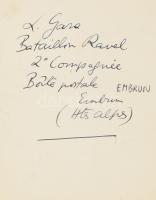 L. Gara
Bataillon Ravel
2e Compagnie
Boîte postale EMBRUN
Embrun
(Htes Alpes)